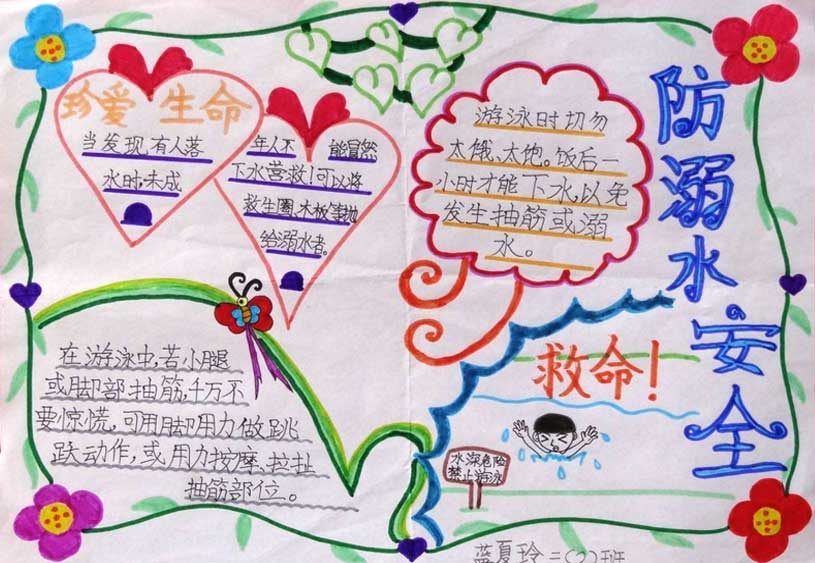 珍爱生命
当发现有人落
水时,未成
年人不能冒然
下水营救!可以将
救生圈、木板等抛
给溺水者。
游泳时切勿
太饿、太饱。饭后一
小时才能下水,以免
发生抽筋或溺
水。
防溺水安全
在游泳中,若小腿
或脚部抽筋,千万不
要惊慌,可用脚用力做跳
跃动作,或用力按摩、拉扯
抽筋部位。
救命!
水深危险
禁止游泳
蓝夏玲二(2)班